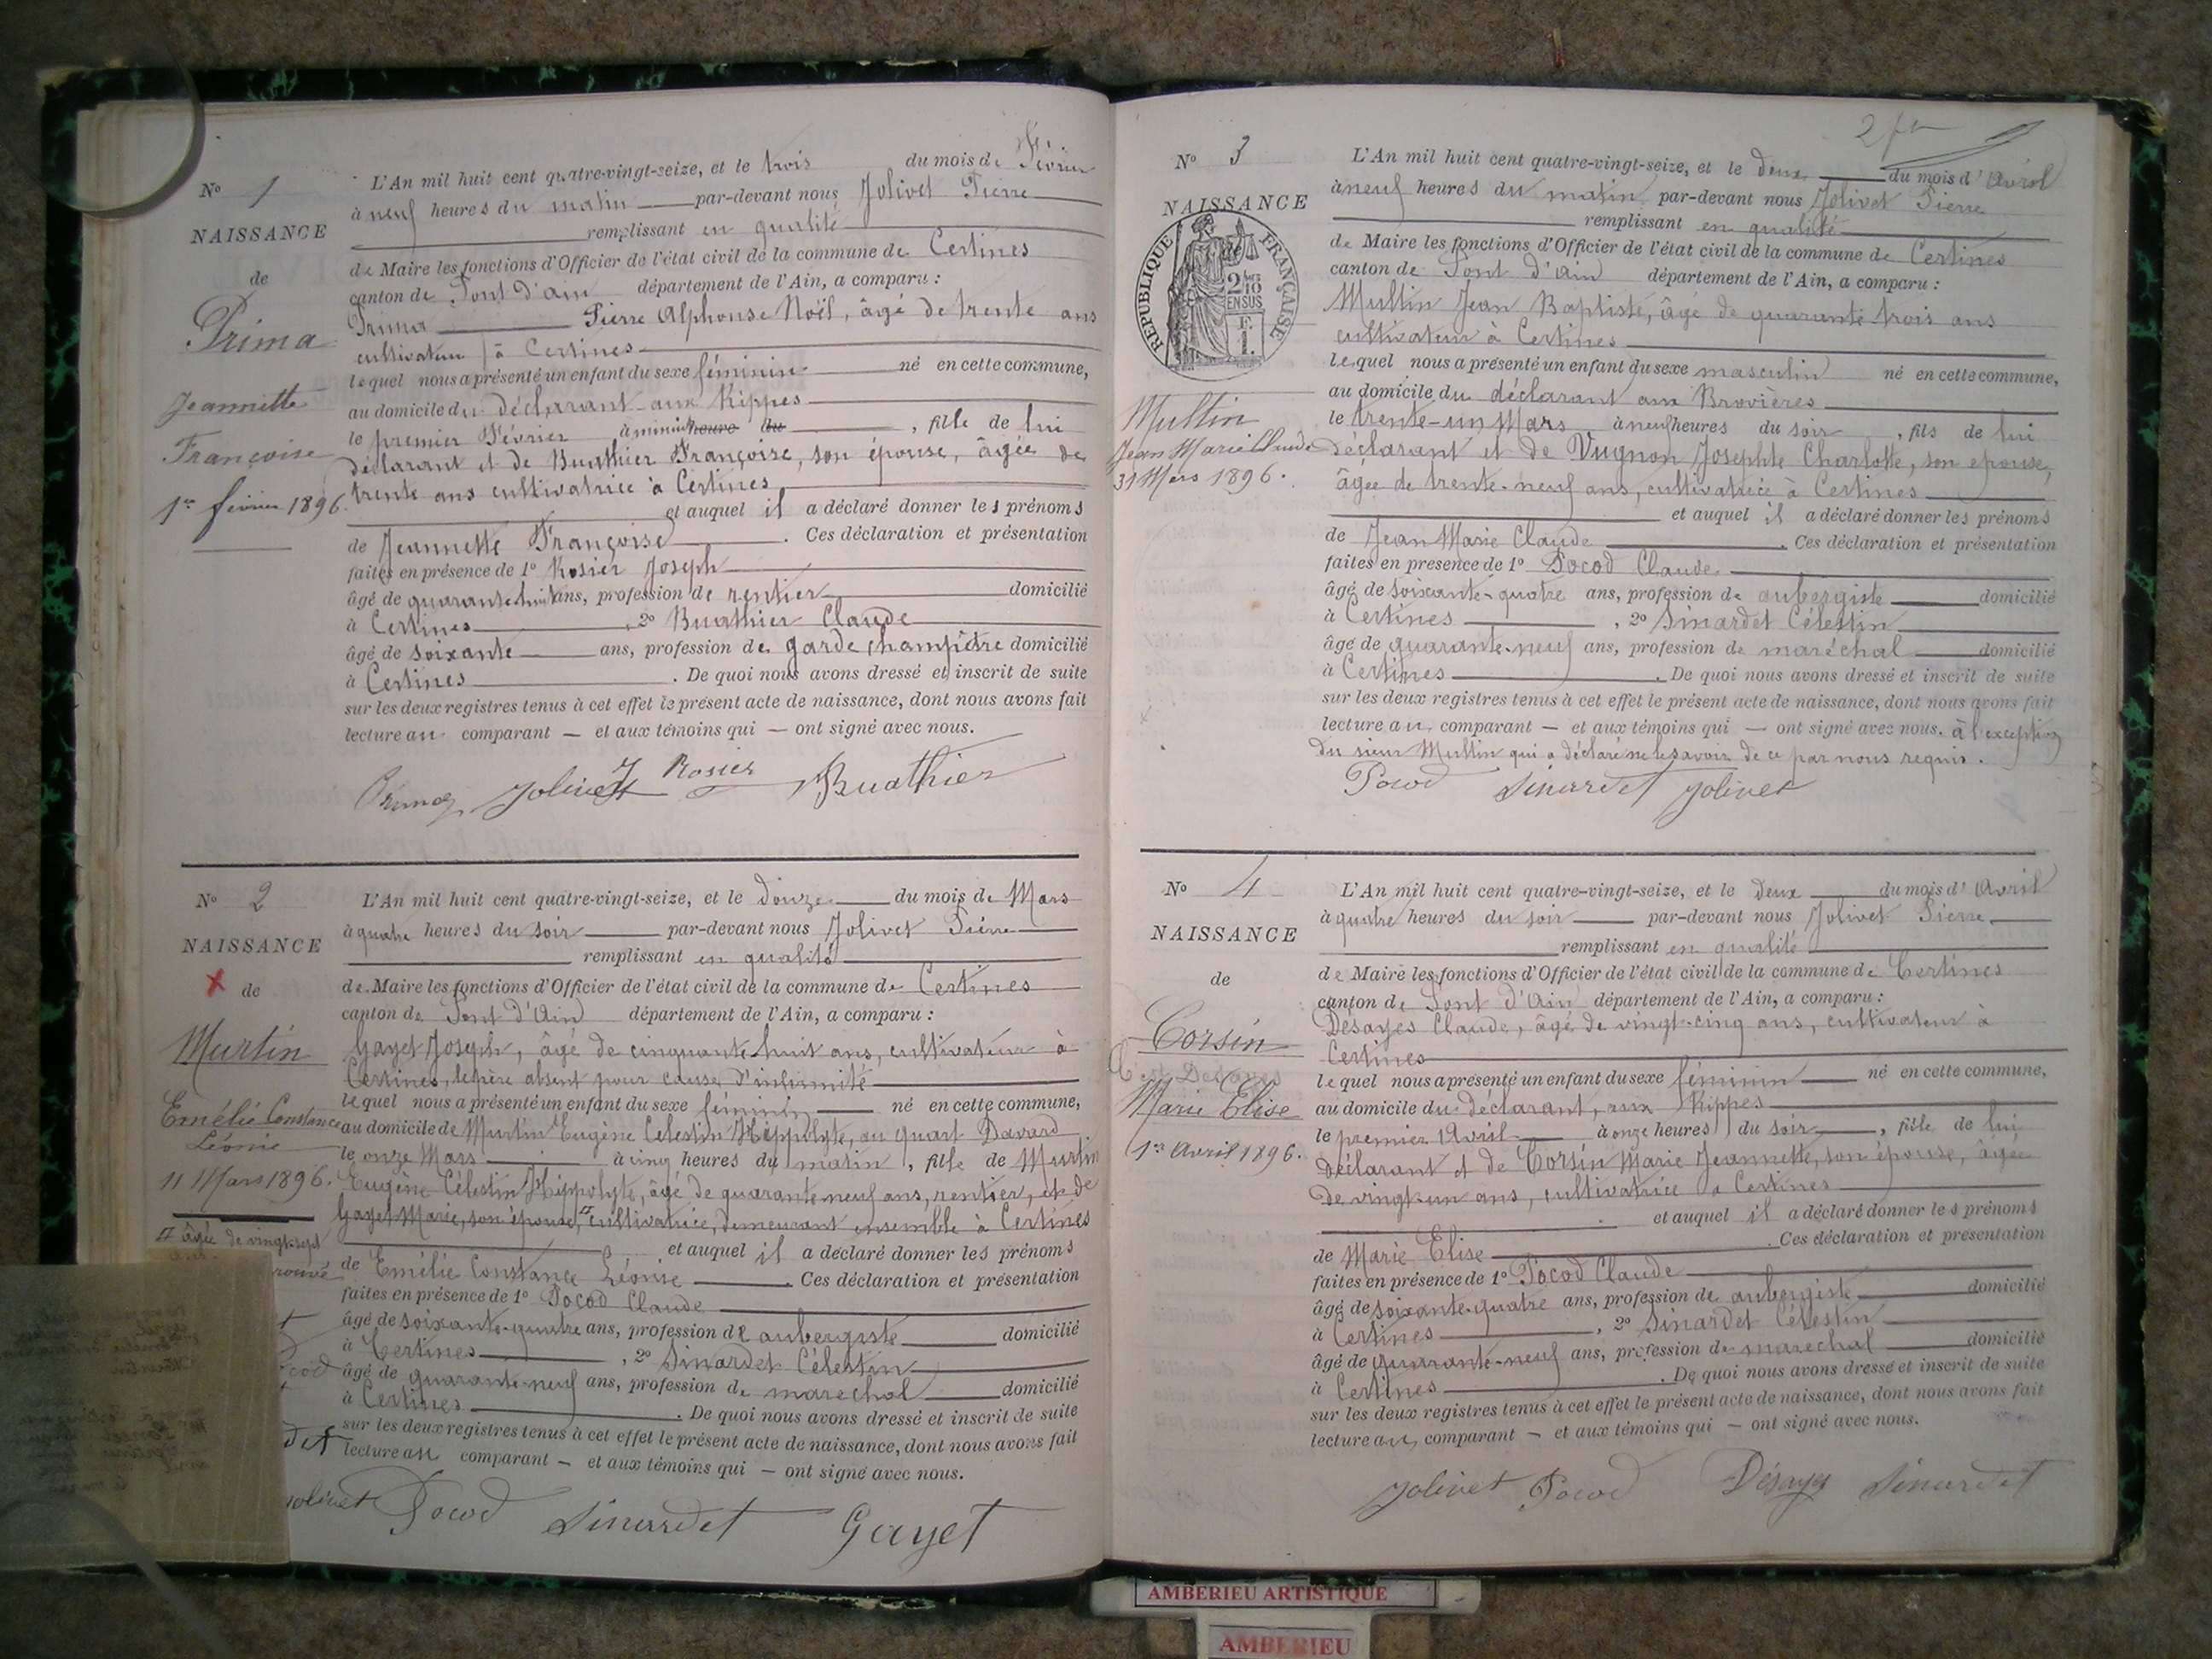 N° 1
NAISSANCE
de
Prima
Jeannette
Françoise
1er février 1896.
L'An mil huit cent quatre-vingt-seize, et le trois du mois de Février
à neuf heures du matin par-devant nous Jolivet Pierre
remplissant en qualité
de Maire les fonctions d'Officier de l'état civil de la commune de Certines
canton de Pont d'ain département de l'Ain, a comparu :
Prima Pierre Alphonse Noël, âgé de trente ans
cultivateur à Certines
lequel nous a présenté un enfant du sexe féminin né en cette commune,
au domicile du déclarant aux Rippes
le premier Février à minuit heure du , fille de lui
déclarant et de Buathier Françoise, son épouse, âgée de
trente ans cultivatrice à Certines
et auquel il a déclaré donner les prénoms
de Jeannette Françoise . Ces déclaration et présentation
faites en présence de 1° Rosier Joseph
âgé de quarante huit ans, profession de rentier domicilié
à Certines , 2° Buathier Claude
âgé de soixante ans, profession de garde champêtre domicilié
à Certines . De quoi nous avons dressé et inscrit de suite
sur les deux registres tenus à cet effet le présent acte de naissance, dont nous avons fait
lecture au comparant — et aux témoins qui — ont signé avec nous.
Prima Jolivet J Rosier Buathier
N° 2
NAISSANCE
de
Murtin
Emélie Constance
Léonie
11 Mars 1896.
âgée de vingt-sept
L'An mil huit cent quatre-vingt-seize, et le douze du mois de Mars
à quatre heures du soir par-devant nous Jolivet Pierre
remplissant en qualité
de Maire les fonctions d'Officier de l'état civil de la commune de Certines
canton de Pont d'Ain département de l'Ain, a comparu :
Gayet Joseph, âgé de cinquante huit ans, cultivateur à
Certines, le père absent pour cause d'infirmité
lequel nous a présenté un enfant du sexe féminin né en cette commune,
au domicile de Murtin Eugène Célestin Hippolyte, au quart Davard
le onze Mars à cinq heures du matin , fille de Murtin
Eugène Célestin Hippolyte, âgé de quarante-neuf ans, rentier, et de
Gayet Marie, son épouse, cultivatrice, demeurant ensemble à Certines
et auquel il a déclaré donner les prénoms
de Emélie Constance Léonie . Ces déclaration et présentation
faites en présence de 1° Pocod Claude
âgé de soixante-quatre ans, profession de aubergiste domicilié
à Certines , 2° Sinardet Célestin
âgé de quarante-neuf ans, profession de maréchal domicilié
à Certines . De quoi nous avons dressé et inscrit de suite
sur les deux registres tenus à cet effet le présent acte de naissance, dont nous avons fait
lecture au comparant — et aux témoins qui — ont signé avec nous.
Jolivet Pocod Sinardet Gayet
N° 3
NAISSANCE
RÉPUBLIQUE FRANÇAISE
2/10 EN SUS
Multin
Jean Marie Claude
31 Mars 1896.
L'An mil huit cent quatre-vingt-seize, et le deux du mois d'Avril
à neuf heures du matin par-devant nous Jolivet Pierre
remplissant en qualité
de Maire les fonctions d'Officier de l'état civil de la commune de Certines
canton de Pont d'ain département de l'Ain, a comparu :
Multin Jean Baptiste, âgé de quarante trois ans
cultivateur à Certines
lequel nous a présenté un enfant du sexe masculin né en cette commune,
au domicile du déclarant aux Brovières
le trente-un Mars à neuf heures du soir , fils de lui
déclarant et de Vugnon Josephte Charlotte, son épouse,
âgée de trente-neuf ans, cultivatrice à Certines
et auquel il a déclaré donner les prénoms
de Jean Marie Claude . Ces déclaration et présentation
faites en présence de 1° Pocod Claude
âgé de soixante-quatre ans, profession de aubergiste domicilié
à Certines , 2° Sinardet Célestin
âgé de quarante-neuf ans, profession de maréchal domicilié
à Certines . De quoi nous avons dressé et inscrit de suite
sur les deux registres tenus à cet effet le présent acte de naissance, dont nous avons fait
lecture au comparant — et aux témoins qui — ont signé avec nous. à l'exception
du sieur Multin qui a déclaré ne le savoir de ce par nous requis.
Pocod Sinardet Jolivet
N° 4
NAISSANCE
de
Corsin
Marie Elise
1er Avril 1896.
L'An mil huit cent quatre-vingt-seize, et le deux du mois d'Avril
à quatre heures du soir par-devant nous Jolivet Pierre
remplissant en qualité
de Maire les fonctions d'Officier de l'état civil de la commune de Certines
canton de Pont d'Ain département de l'Ain, a comparu :
Désayes Claude, âgé de vingt-cinq ans, cultivateur à
Certines
lequel nous a présenté un enfant du sexe féminin né en cette commune,
au domicile du déclarant, aux Rippes
le premier Avril à onze heures du soir , fille de lui
déclarant et de Corsin Marie Jeannette, son épouse, âgée
de vingt-un ans, cultivatrice à Certines
et auquel il a déclaré donner les prénoms
de Marie Elise . Ces déclaration et présentation
faites en présence de 1° Pocod Claude
âgé de soixante-quatre ans, profession de aubergiste domicilié
à Certines , 2° Sinardet Célestin
âgé de quarante-neuf ans, profession de maréchal domicilié
à Certines . De quoi nous avons dressé et inscrit de suite
sur les deux registres tenus à cet effet le présent acte de naissance, dont nous avons fait
lecture au comparant — et aux témoins qui — ont signé avec nous.
Jolivet Pocod Désayes Sinardet
AMBERIEU ARTISTIQUE
AMBERIEU